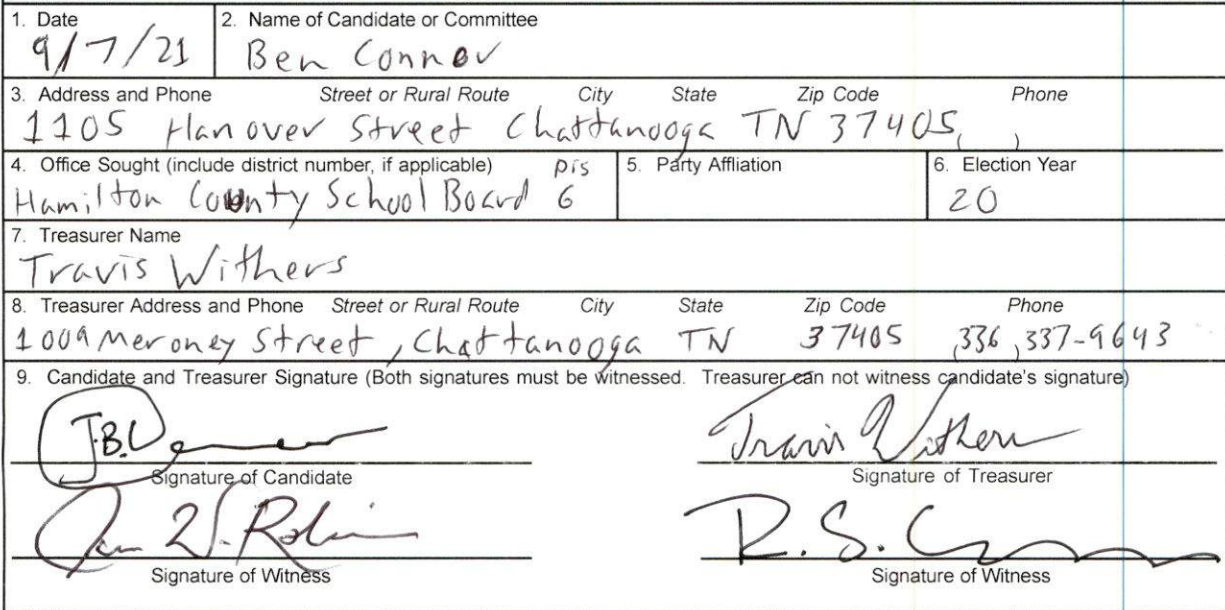 1. Date 2. Name of Candidate or Committee
9/7/21 Ben Connor
3. Address and Phone Street or Rural Route City State Zip Code Phone
1105 Hanover Street Chattanooga TN 37405, )
4. Office Sought (include district number, if applicable) Dis 5. Party Affliation 6. Election Year
Hamilton County School Board 6 20
7. Treasurer Name
Travis Withers
8. Treasurer Address and Phone Street or Rural Route City State Zip Code Phone
1009 Meroney Street, Chattanooga TN 37405 336 337-9643
9. Candidate and Treasurer Signature (Both signatures must be witnessed. Treasurer can not witness candidate's signature)
J.B. Travis Withers
Signature of Candidate Signature of Treasurer
R.S.
Signature of Witness Signature of Witness